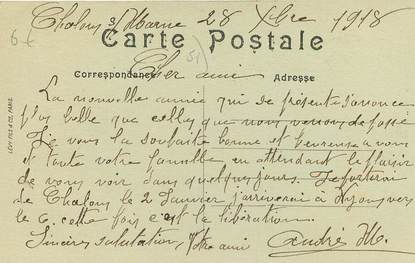 Chalons s/Marne 28 Xbre 1918
Carte Postale
6 €
51
Correspondance
Adresse
Cher ami
La nouvelle année qui se présente s'annonce
plus belle que celles que nous venons de passé
Je vous la souhaite bonne et heureuse a vous
et toute votre famille en attendant le plaisir
de vous voir dans quelques jours. Je partirai
de Chalons le 2 Janvier j'arriverai à Nyons vers
le 6. cette fois c'est la libération.
Sincères salutation, Votre ami André M.
LÉVY FILS & CIE, PARIS